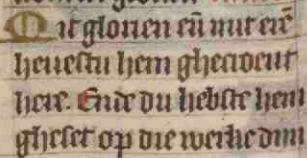 Mit glorien eñ mit erē
heuestu hem ghecroent
here. Ende du hebste hem
gheset op die werke din